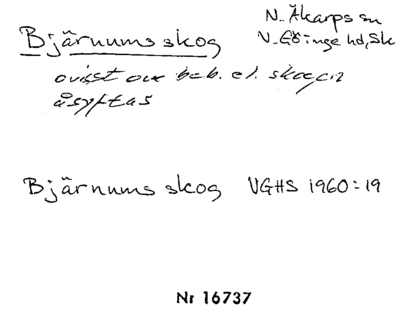 Bjärnums skog
N. Åkarps sn
V. Göinge hd, Sk
ovisst om beb. el. skogen
åsyftas
Bjärnums skog VGHS 1960:19
Nr 16737